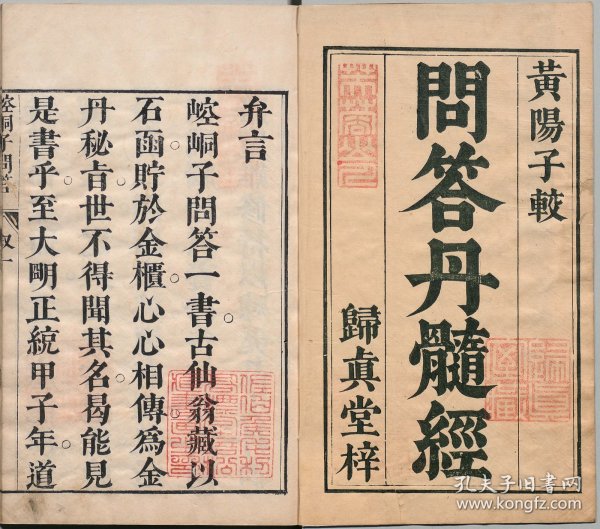 黃陽子較
問答丹髓經
歸眞堂梓
弁言
崆峒子問答一書古仙翁藏以
石函貯於金櫃心心相傳爲金
丹秘旨世不得聞其名曷能見
是書乎至大明正統甲子年道
崆峒子問答
叙一
孔夫子旧书网
www.kongfz.com